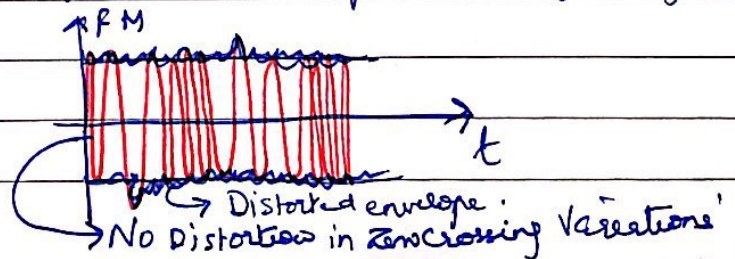 FM
t
→ Distorted envelope.
→ No Distortion in Zero Crossing Variations'